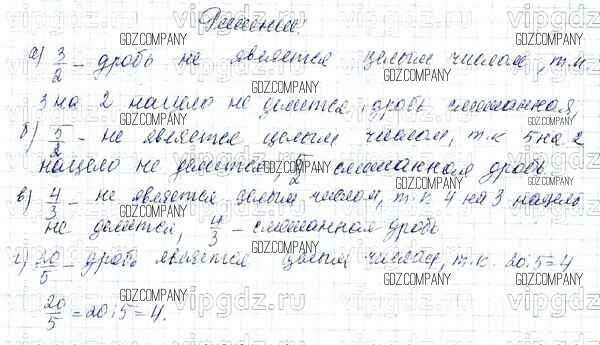 Решение:
а) 3/2 – дробь не является целым числом, т.к.
3 на 2 нацело не делится, дробь смешанная,
б) 5/2 – не является целым числом, т.к 5 на 2
нацело не делится, 5/2 смешанная дробь.
в) 4/3 – не является целым числом, т.к. 4 на 3 нацело
не делится, 4/3 – смешанная дробь
г) 20/5 – дробь является целым числом, т.к. 20:5=4
20/5 = 20:5 = 4.
GDZ.COMPANY
vipgdz.ru